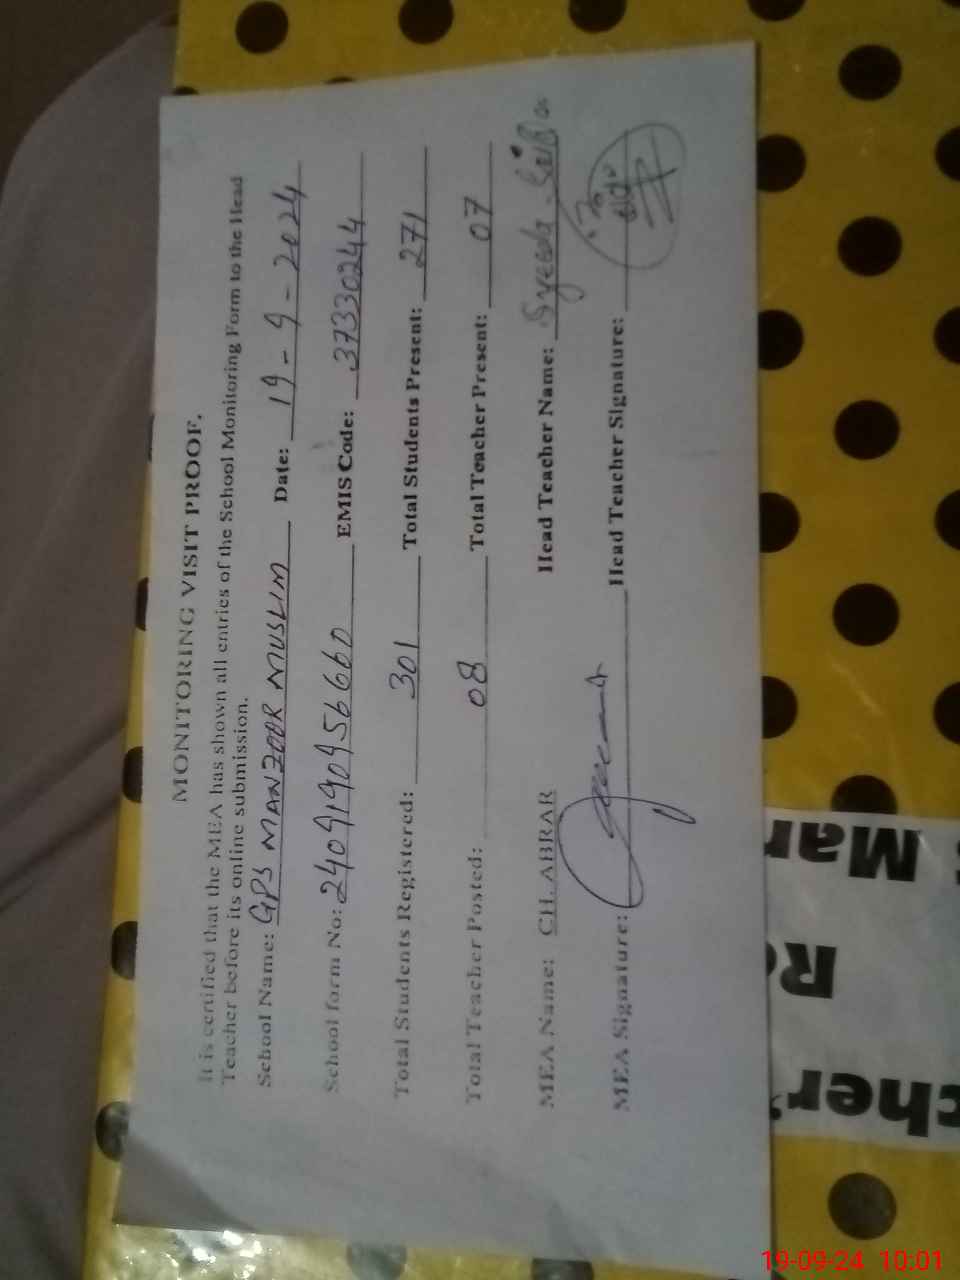 MONITORING VISIT PROOF.
It is certified that the MEA has shown all entries of the School Monitoring Form to the Head
Teacher before its online submission.
School Name: GPS MANZOOR MUSLIM Date: 19-9-2024
School form No: 2409190956660 EMIS Code: 37330244
Total Students Registered: 301 Total Students Present: 271
Total Teacher Posted: 08 Total Teacher Present: 07
MEA Name: CH.ABRAR Head Teacher Name: Syeeda
MEA Signature: Head Teacher Signature:
Mar
R
cher
19-09-24 10:01